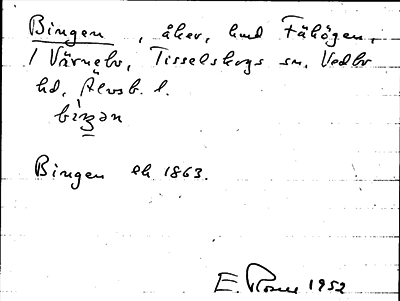 Bingen, åker, hmd Fähögen,
1 Värnebo, Tisselskogs sn. Vedbo
hd, Älvsb. l.
bìŋən
Bingen ek 1863.
E. Rosen 1952